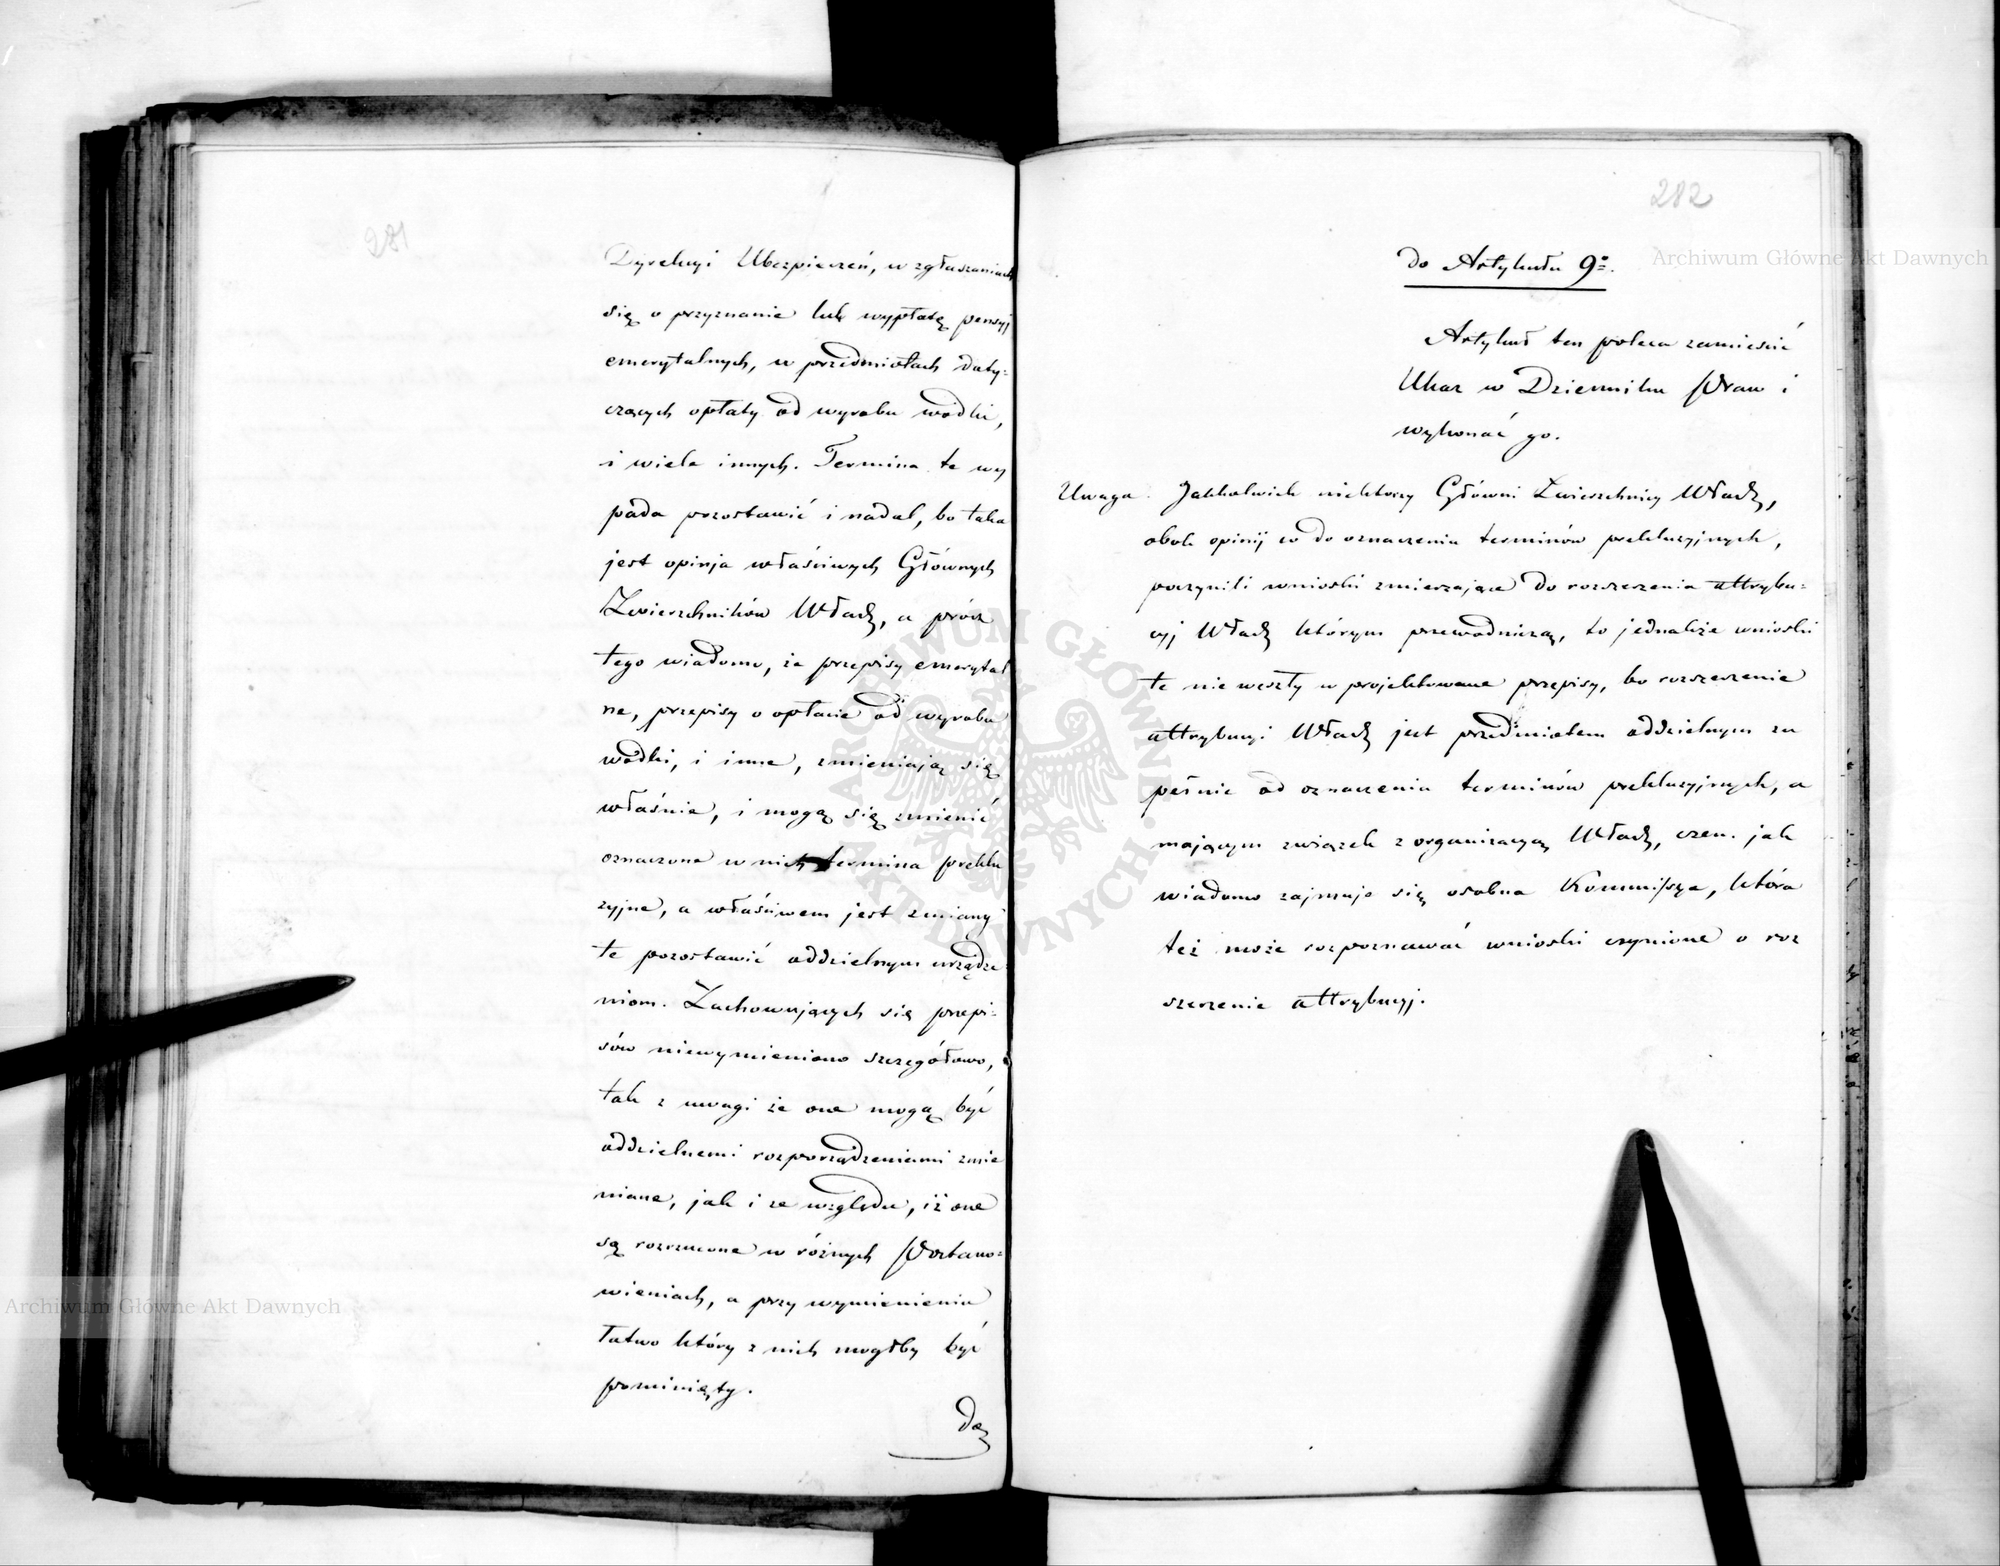 281
Dyrekcyi Ubezpieczeń, w zgłaszaniach
się o przyznanie lub wypłatę pensyj
emerytalnych, w przedmiotach doty-
czących opłaty od wyrobu wódki,
i wiele innych. Termina te wy
pada pozostawić i nadal, bo taka
jest opinja właściwych Głównych
Zwierzchników Władz, a prócz
tego wiadomo, że przepisy emerytal
ne, przepisy o opłacie od wyrobu
wódki, i inne, zmieniają się
właśnie, i mogą się zmienić
oznaczone w nich termina preklu
zyjne, a właściwem jest zmiany
te pozostawić oddzielnym urządze
niom. Zachowujących się przepi-
sów niewymieniono szczegółowo,
tak z uwagi że one mogą być
oddzielnemi rozporządzeniami zmie
niane, jak i ze względu, iż one
są rozrzucone w różnych Postano-
wieniach, a przy wymienieniu
łatwo który z nich mógłby być
pominięty.
do
282
do Artykułu 9o.
Artykuł ten poleca zamieścić
Ukaz w Dzienniku Praw i
wykonać go.
Uwaga. Jakkolwiek niektórzy Główni Zwierzchnicy Władz,
obok opinij co do oznaczenia terminów prekluzyjnych,
poczynili wnioski zmierzające do rozszerzenia attrybu-
cyj Władz którym przewodniczą, to jednakże wnioski
te nie weszły w projektowane przepisy, bo rozszerzenie
attrybucyi Władz jest przedmiotem oddzielnym zu
pełnie od oznaczenia terminów prekluzyjnych, a
mającym związek z organizacyą Władz, czem jak
wiadomo zajmuje się osobna Kommissya, która
też może rozpoznawać wnioski czynione o roz
szerzenie attrybucyj.
Archiwum Główne Akt Dawnych
Archiwum Główne Akt Dawnych
ARCHIWUM GŁÓWNE AKT DAWNYCH